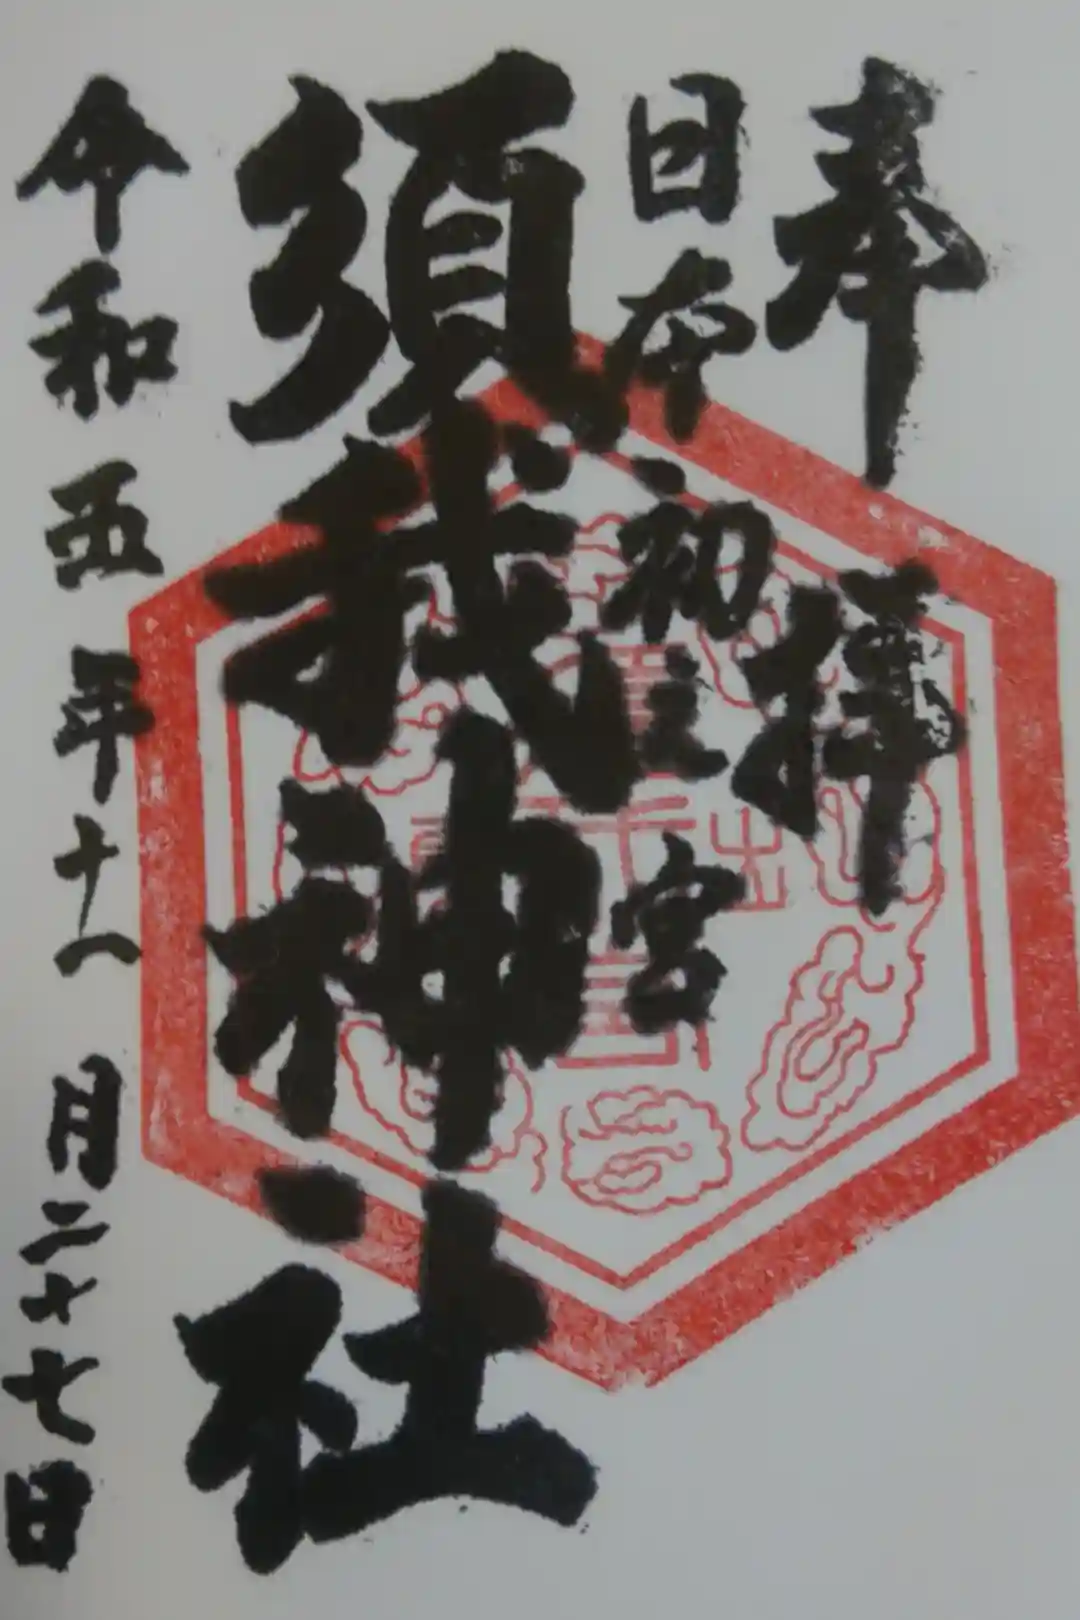 奉拝
日本初之宮
須我神社
令和五年十一月二十七日